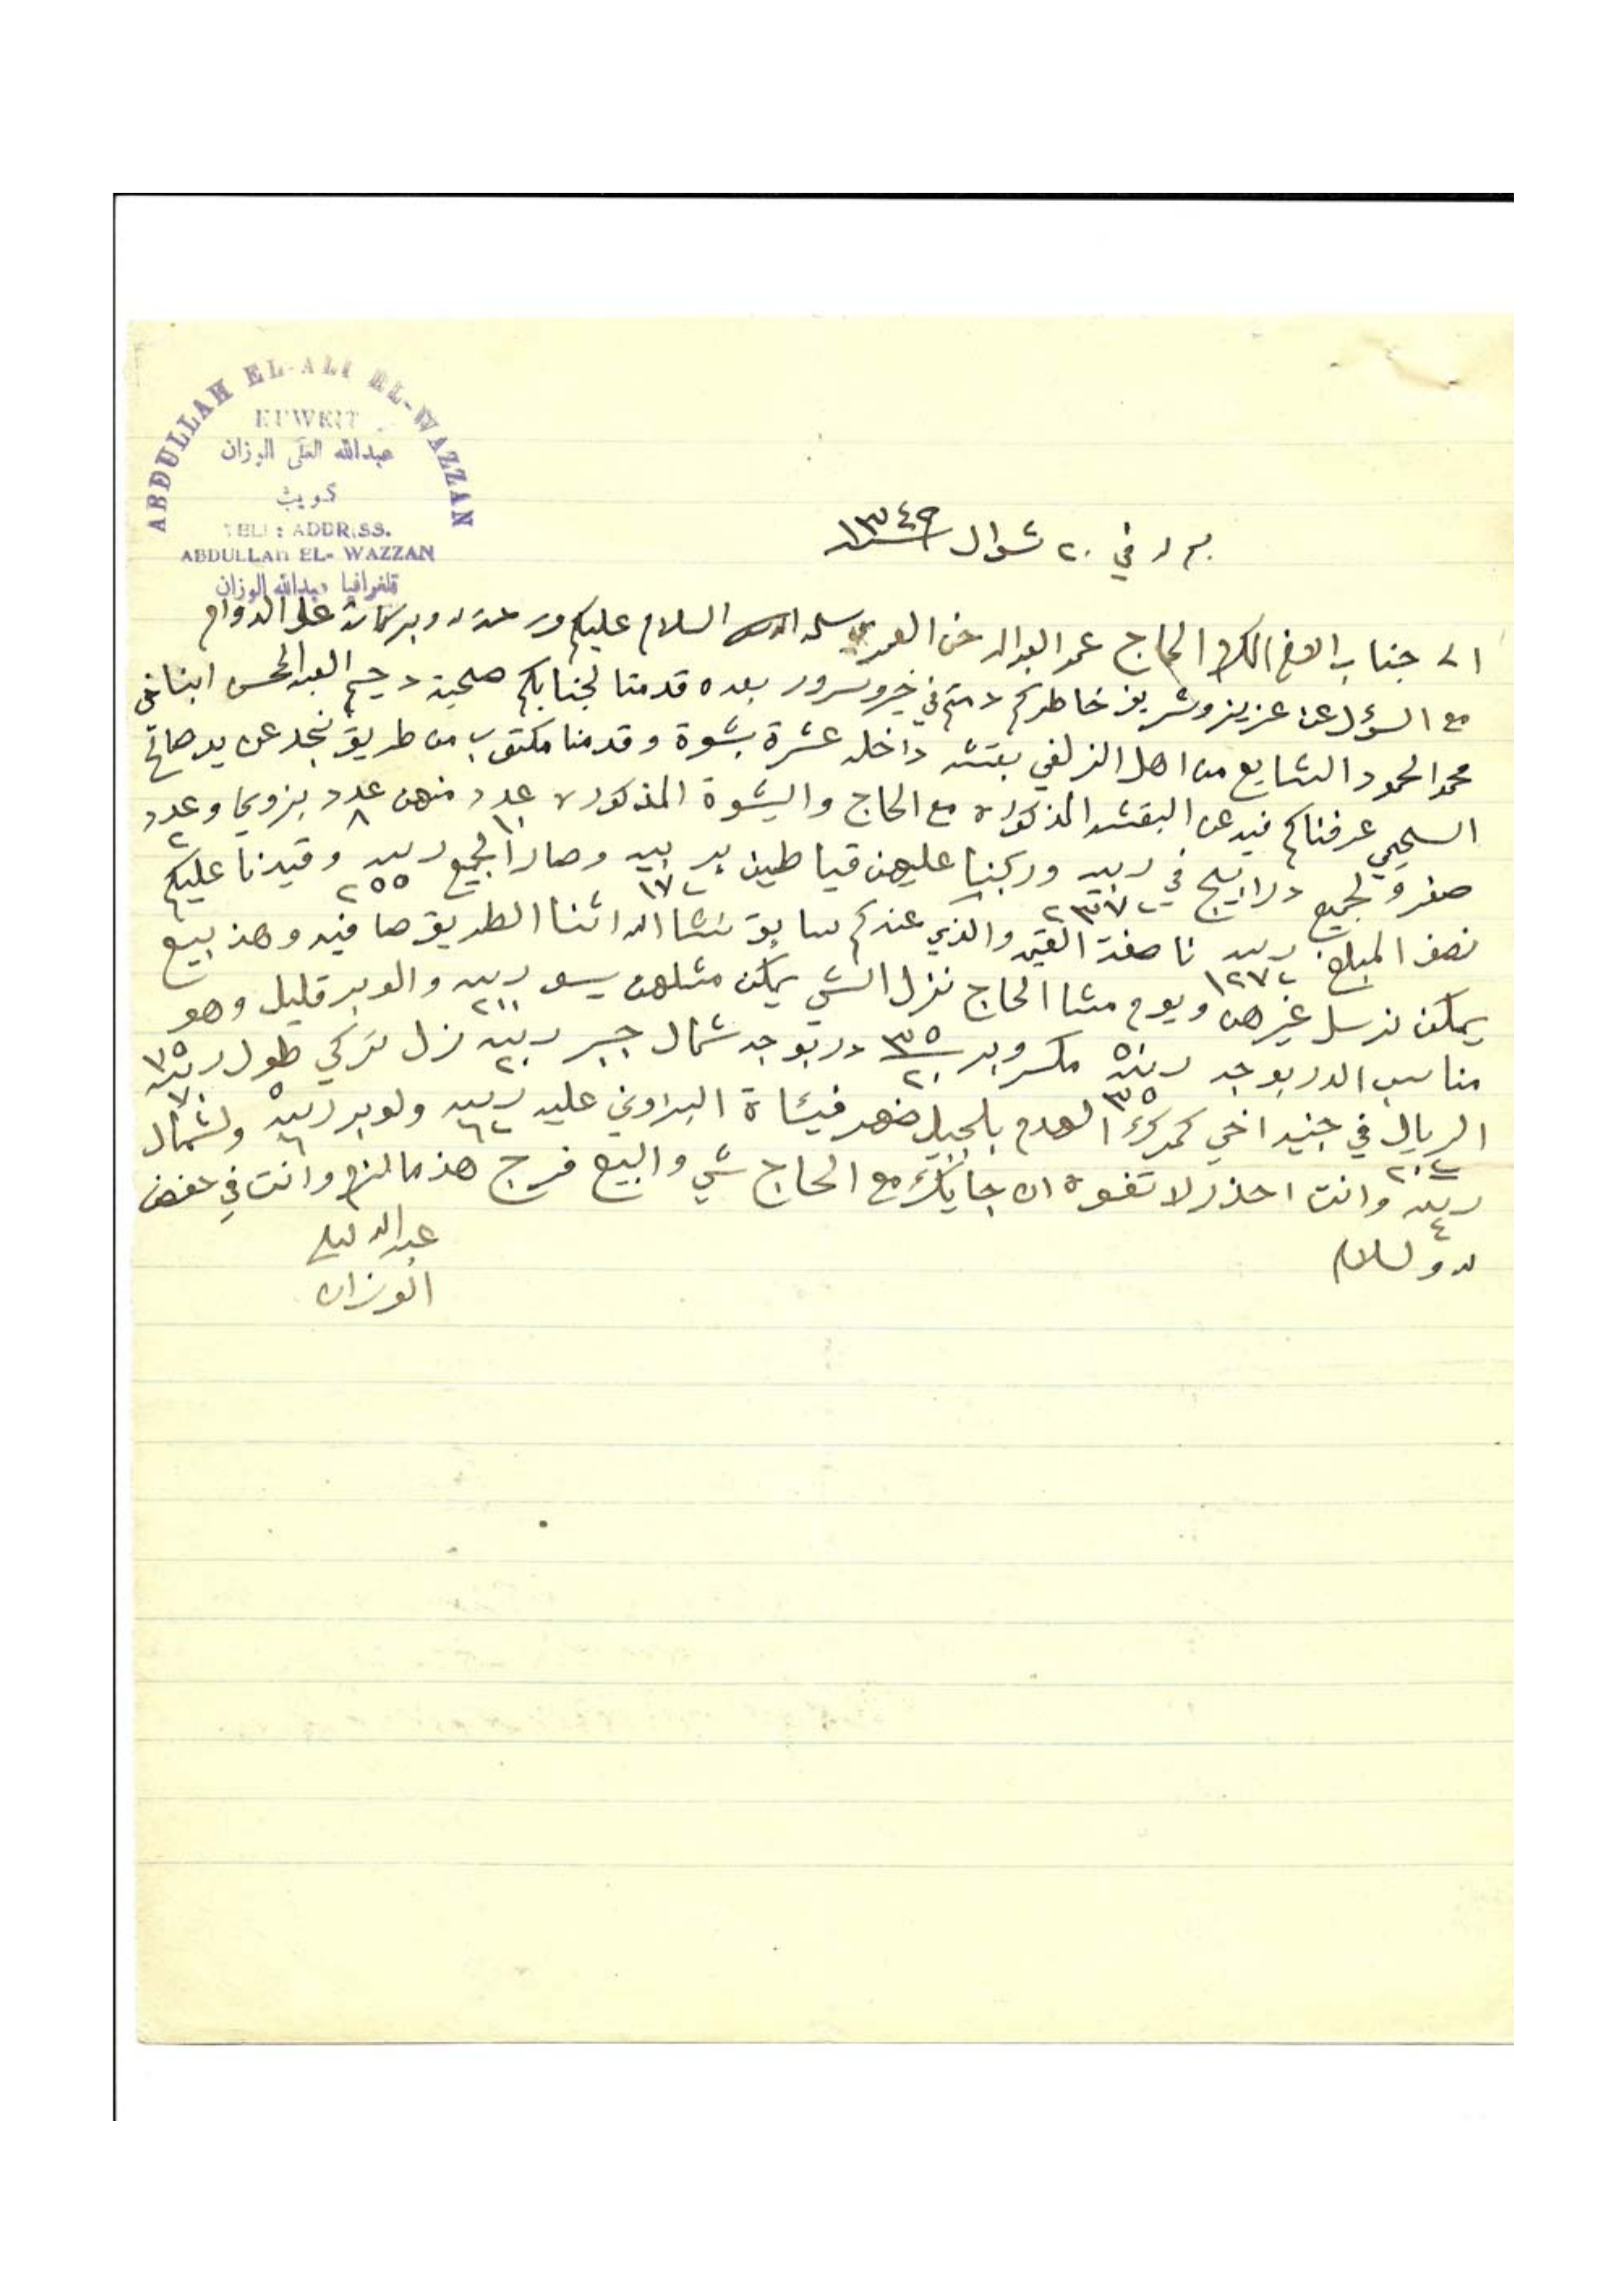 ABDULLAH EL-ALI EL-WAZZAN
KUWEIT
عبدالله العلي الوزان
كويت
TELE: ADDRESS.
ABDULLAH EL- WAZZAN
تلغرافيا عبدالله الوزان
في ٢٠ شوال ١٣٤٩
الى جناب الاخ المكرم الحاج السلام عليكم ورحمة الله وبركاته على الدوام
مع السؤل عن عزيز وشريف خاطركم دمتم في خير وسرور بعده قدمنا لجنابكم صحبة دحيم العبدالمحسن ابناخي
محمد الحمود الشايع من اهل الزلفي بقشه داخله عشرة بشوة وقدمنا مكتوب من طريق نجد عن يد صالح
السحيمي عرفناكم فيه عن البقشه المذكوره مع الحاج والبشوة المذكوره عدد ١٠ منهن عدد ٨ بزويا وعدد ٢
صفر ولجميع درابيج في ربيه ٢٣٧ وركبنا عليهن قياطين ربيه ١٧ وصار الجميع ربيه ٢٥٥ وقيدنا عليكم
نصف المبلغ ربيه ١٢٧ ناصفة القيمه والذي عندكم سابق نشا الله اثنا الطريق صافيه وهذ بيع
يمكن نرسل غيرهن ويوم مشا الحاج نزل الشي يمكن مثلهن يسو ربيه ٢١١ والوبر قليل وهو
مناسب الدربوجه ربيه ٣٥ مكسر وبر ٣٥ ٢٠ دربوجه شمال جبر ربيه ٢٠ نزل تركي طول ربيه ٧٥ ٧٠
الريال في جنيه اخي كمرك الهدم بلجبيل ضهر فيشاة البزوني عليه ربيه ٦ ولوبر ربيه ٥ ٦ ولشمال
ربيه ٤ وانت احذر لا تفوه ان جايك مع الحاج شي والبيع فرج هذ مالزم وانت في حفض
الله ولسلام
عبدالله لعلي
الوزان